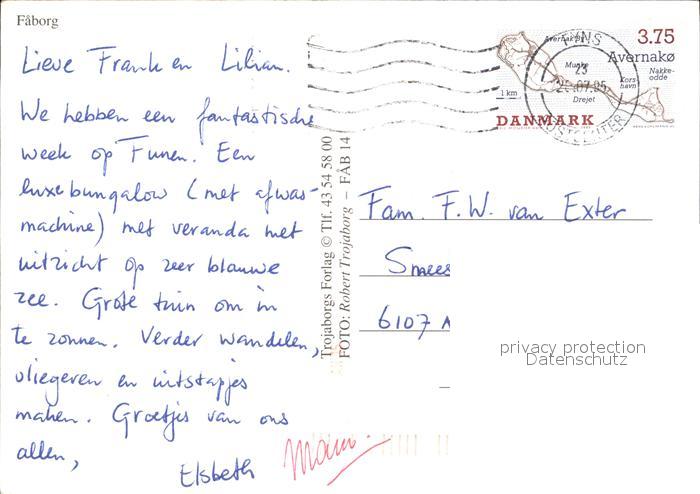 Fåborg
Lieve Frank en Lilian.
We hebben een fantastische
week op Funen. Een
luxe bungalow (met afwas-
machine) met veranda met
uitzicht op zeer blauwe
zee. Grote tuin om in
te zonnen. Verder wandelen,
vliegeren en uitstapjes
maken. Groetjes van ons
allen,
Elsbeth
Trojaborgs Forlag © Tlf. 43 54 58 00
FOTO: Robert Trojaborg – FÅB 14
3.75
Avernakø
Avernak By
Munke
Nakke-
odde
Kors-
havn
1 km
Drejet
DANMARK
FYNS
23
.07.95
POSTCENTER
Fam. F.W. van Exter
Smees
6107
privacy protection
Datenschutz